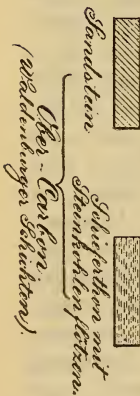 Sandstein
Schieferthon mit
Steinkohlenflötzen.
Ober-Carbon.
(Waldenburger Schichten).